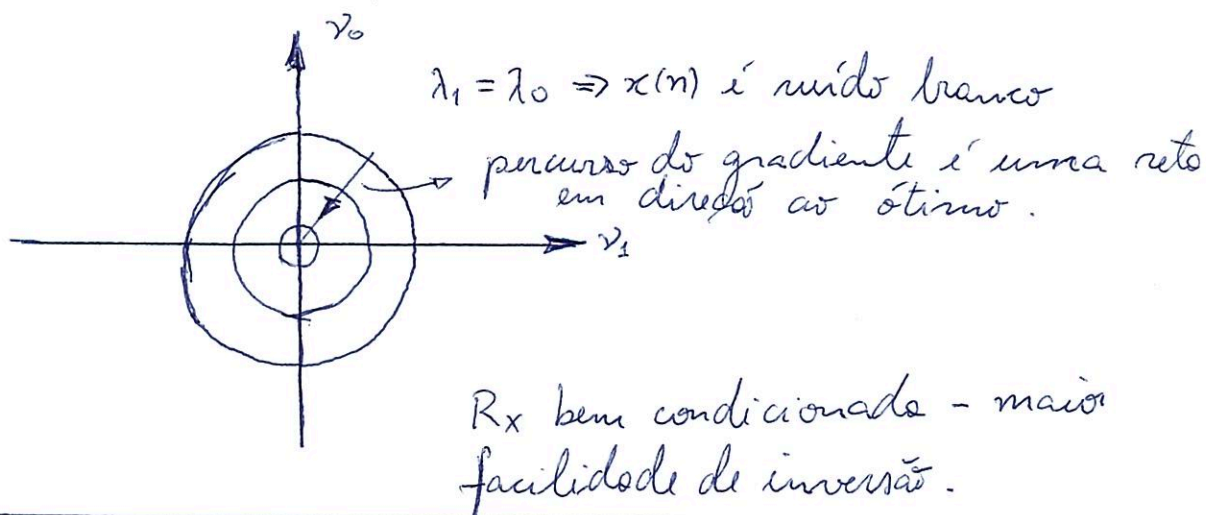 ν₀
λ₁ = λ₀ ⇒ x(n) é ruído branco
percurso do gradiente é uma reta
em direção ao ótimo.
ν₁
Rₓ bem condicionada - maior
facilidade de inversão.